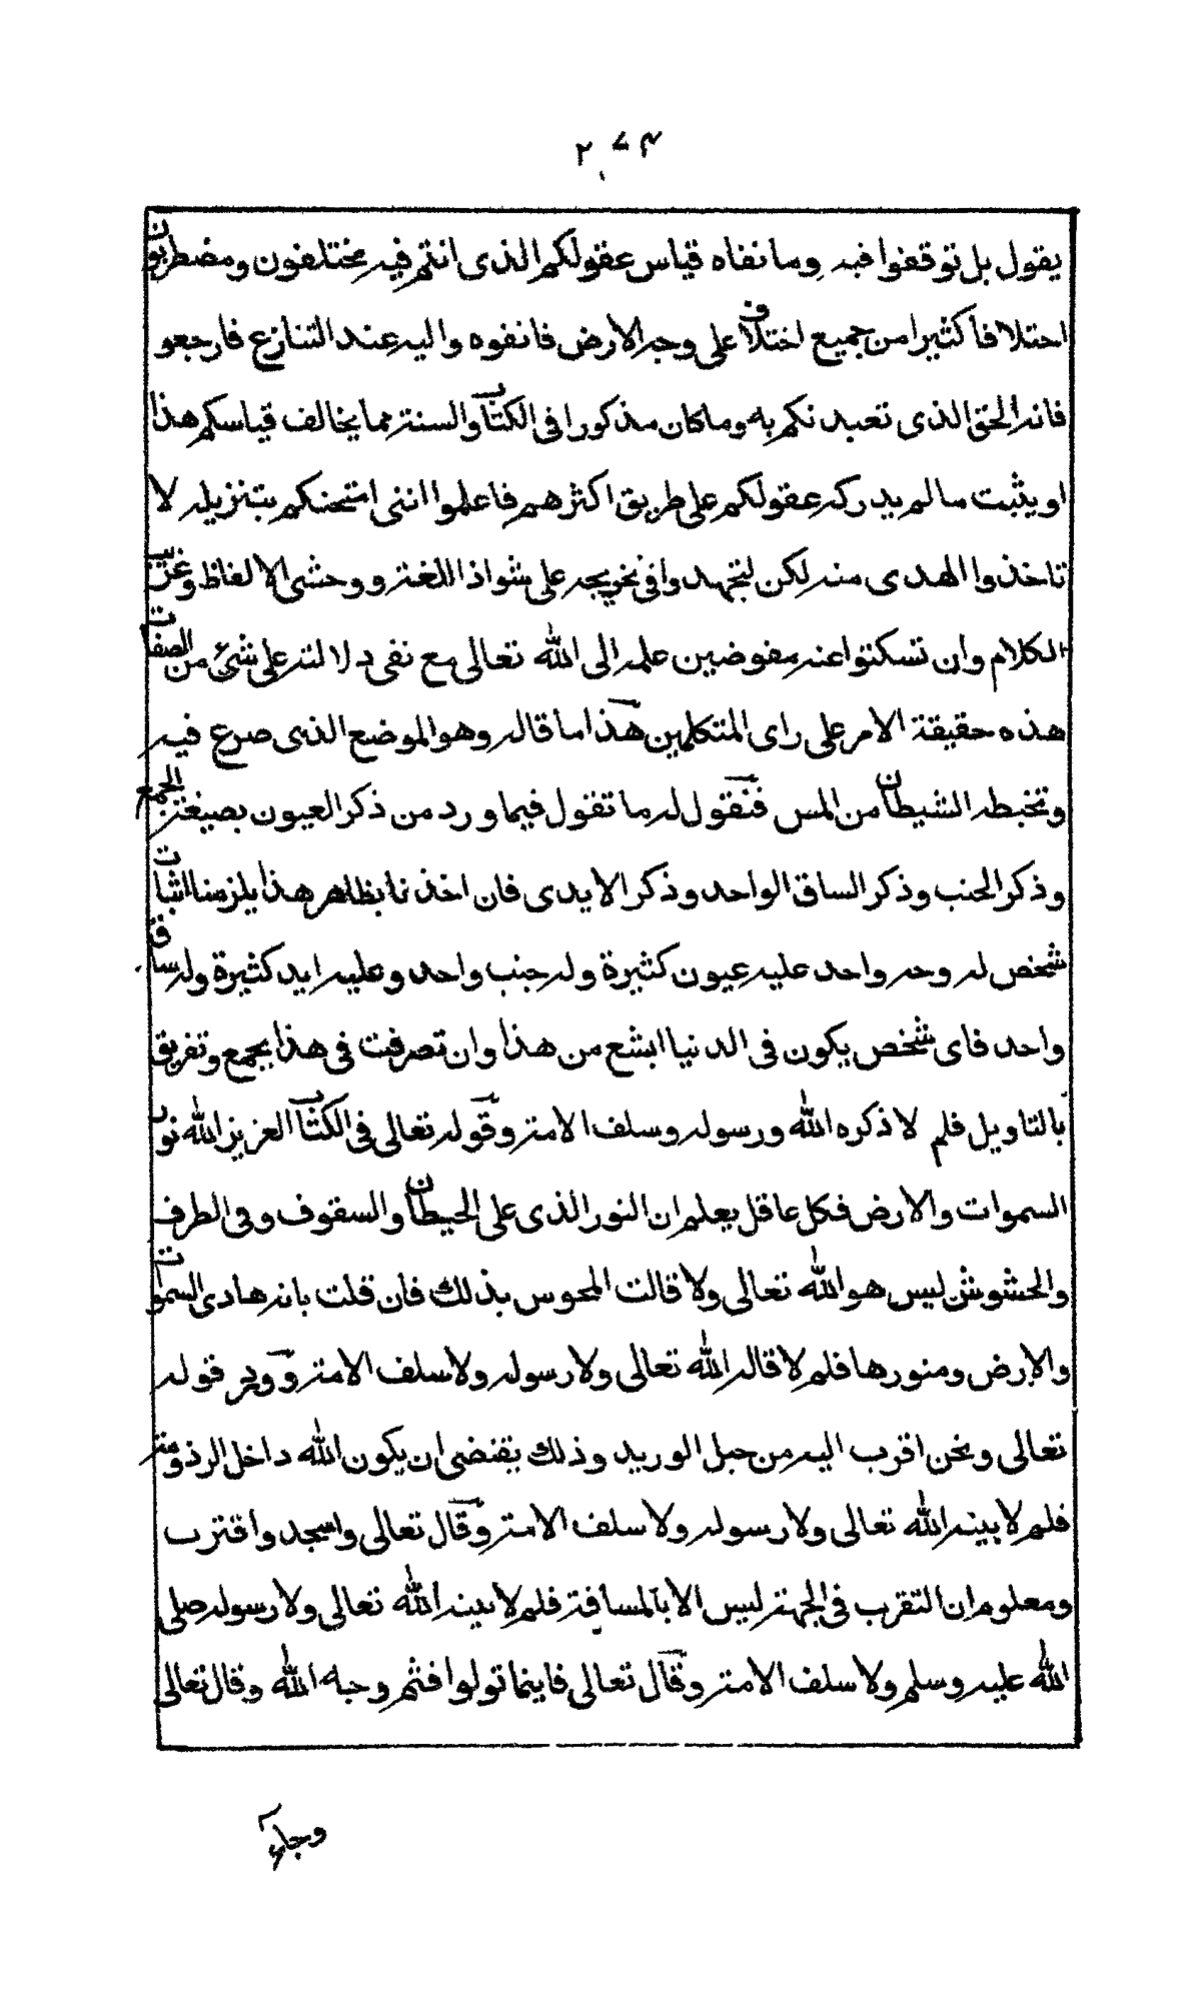 ٢٧٤
يقول بل توقفوا فيه وما نفاه قياس عقولكم الذى انتم فيه مختلفون ومضطربون
اختلافا كثيرا من جميع اختلاف على وجه الارض فانفوه واليه عند التنازع فارجعو
فانه الحق الذى تعبدنكم به وما كان مذكورا فى الكتاب والسنة مما يخالف قياسكم هذا
او يثبت ما لم يدركه عقولكم على طريق اكثرهم فاعلموا اننى امتحنكم بتنزيله لا
تاخذوا الهدى منه لكن لتجتهدوا فى تخريجه على شواذ اللغة ووحشى الالفاظ وغرائب
الكلام وان تسكتوا عنه مفوضين علمه الى الله تعالى مع نفى دلالته على شئ من الصفات
هذه حقيقة الامر على راى المتكلمين هذا ما قاله وهو الموضع الذى صرع فيه
وتخبطه الشيطان من المس فنقول له ما تقول فيما ورد من ذكر العيون بصيغة الجمع
وذكر الجنب وذكر الساق الواحد وذكر الايدى فان اخذنا بظاهر هذا يلزمنا اثبات
شخص له وجه واحد عليه عيون كثيرة وله جنب واحد وعليه ايد كثيرة وله ساق
واحد فاى شخص يكون فى الدنيا ابشع من هذا وان تصرفت فى هذا بجمع وتفريق
بالتاويل فلم لا ذكره الله ورسوله وسلف الامة وقوله تعالى فى الكتاب العزيز الله نور
السموات والارض فكل عاقل يعلم ان النور الذى على الحيطان والسقوف وفى الطرف
والحشوش ليس هو الله تعالى ولا قالت المجوس بذلك فان قلت بانه هادى السموات
والارض ومنورها فلم لا قاله الله تعالى ولا رسوله ولا سلف الامة وورد قوله
تعالى ونحن اقرب اليه من حبل الوريد وذلك يقتضى ان يكون الله داخل الرذومة
فلم لا بينه الله تعالى ولا رسوله ولا سلف الامة وقال تعالى واسجد واقترب
ومعلوم ان التقرب فى الجهة ليس الا بالمسافة فلم لا بينه الله تعالى ولا رسوله صلى
الله عليه وسلم ولا سلف الامة وقال تعالى فاينما تولوا فثم وجه الله وقال تعالى
وجاء